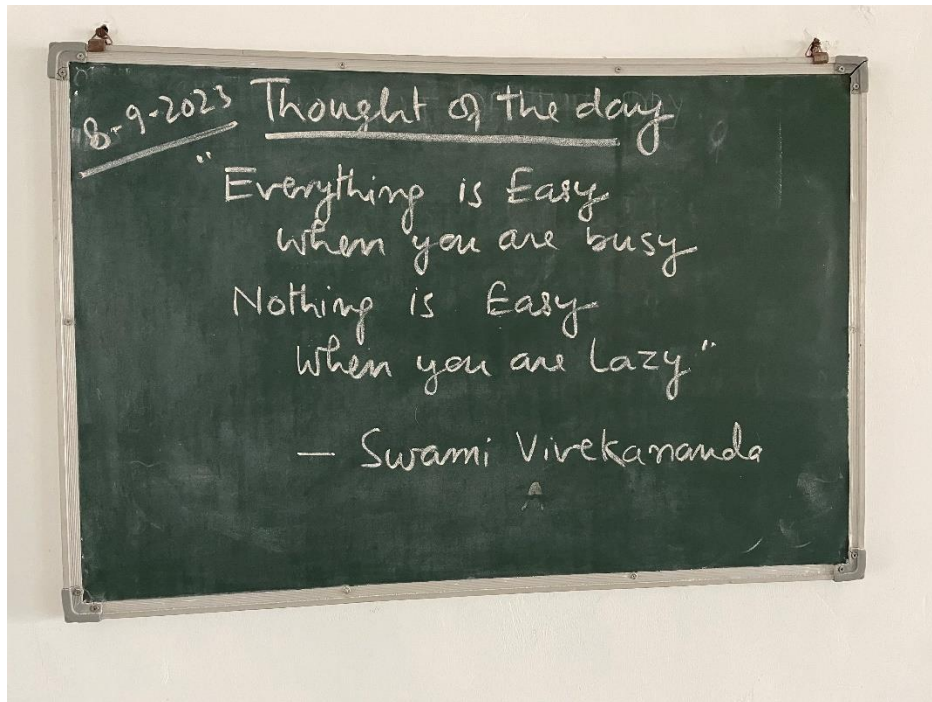 8-9-2023 Thought of the day
"Everything is Easy
when you are busy
Nothing is Easy
When you are Lazy"
— Swami Vivekananda